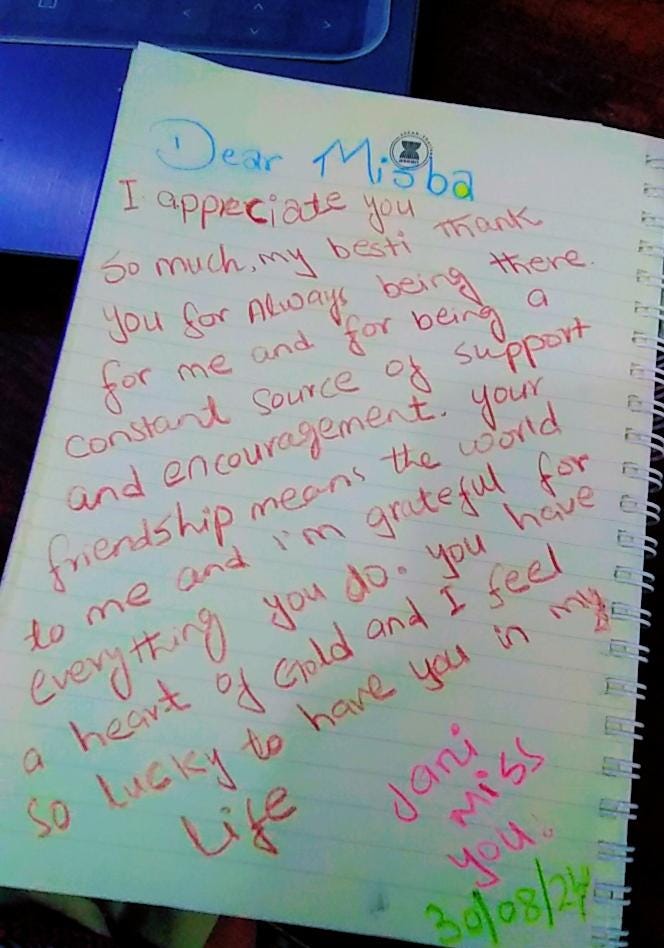 Dear Misba
I appreciate you
so much, my besti thank
you for Always being there.
for me and for being a
constant source of support
and encouragement. your
friendship means the world
to me and i'm grateful for
everything you do. you have
a heart of Gold and I feel
so lucky to have you in my
Life
Jani
Miss
you.
30/08/24